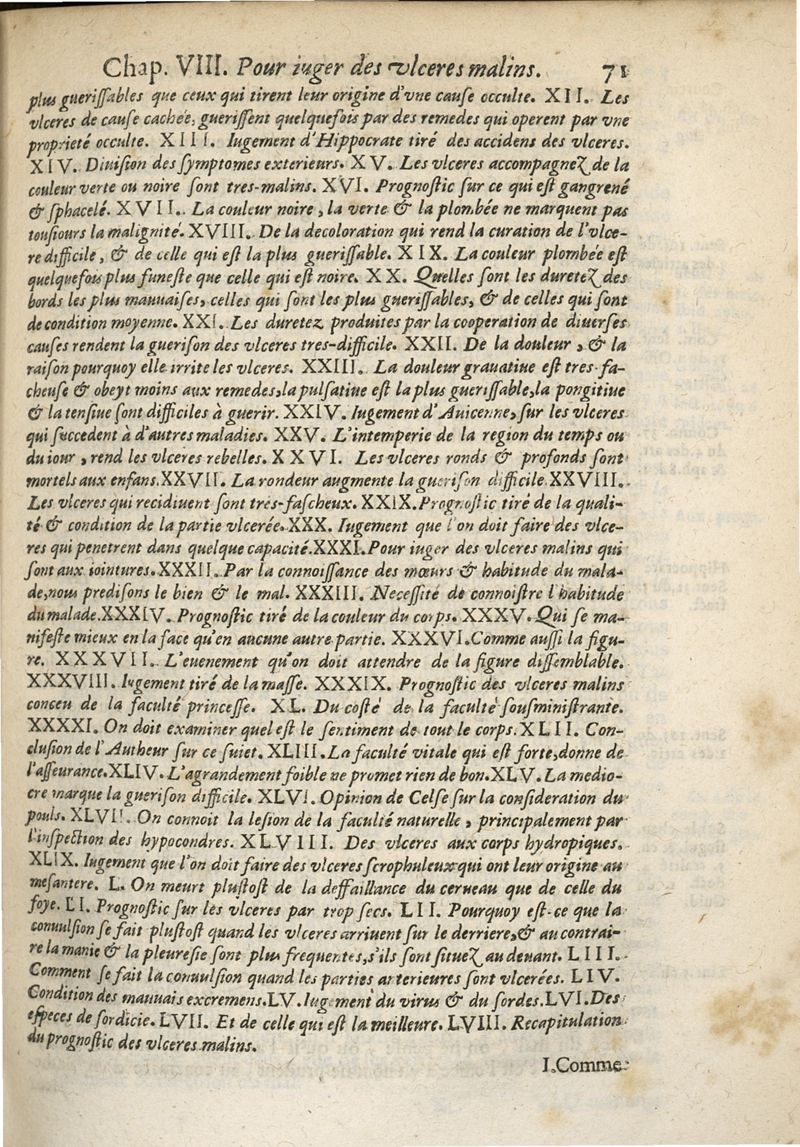 Chap. VIII. Pour iuger des vlceres malins. 71
plus gueriſſables que ceux qui tirent leur origine d'vne cauſe occulte. XII. Les
vlceres de cauſe cachée, gueriſſent quelquefois par des remedes qui operent par vne
proprieté occulte. XIII. Iugement d'Hippocrate tiré des accidens des vlceres.
XIV. Diuiſion des ſymptomes exterieurs. XV. Les vlceres accompagnez de la
couleur verte ou noire ſont tres-malins. XVI. Prognoſtic ſur ce qui eſt gangrené
& ſphacelé. XVII. La couleur noire, la verte & la plombée ne marquent pas
touſiours la malignité. XVIII. De la decoloration qui rend la curation de l'vlce-
re difficile, & de celle qui eſt la plus gueriſſable. XIX. La couleur plombée eſt
quelquefou plus funeſte que celle qui eſt noire. XX. Quelles ſont les duretez des
bords les plus mauuaiſes, celles qui ſont les plus gueriſſables, & de celles qui ſont
de condition moyenne. XXI. Les duretez produites par la cooperation de diuerſes
cauſes rendent la gueriſon des vlceres tres-difficile. XXII. De la douleur, & la
raiſon pourquoy elle irrite les vlceres. XXIII. La douleur grauatiue eſt tres-fa-
cheuſe & obeyt moins aux remedes, la pulſatiue eſt la plus gueriſſable, la pongitiue
& la tenſiue ſont difficiles à guerir. XXIV. Iugement d'Auicenne, ſur les vlceres
qui ſuccedent à d'autres maladies. XXV. L'intemperie de la region du temps ou
du iour, rend les vlceres rebelles. XXVI. Les vlceres ronds & profonds ſont
mortels aux enfans. XXVII. La rondeur augmente la gueriſon difficile. XXVIII.
Les vlceres qui recidiuent ſont tres-faſcheux. XXIX. Prognoſtic tiré de la quali-
té & condition de la partie vlcerée. XXX. Iugement que l'on doit faire des vlce-
res qui penetrent dans quelque capacité. XXXI. Pour iuger des vlceres malins qui
ſont aux iointures. XXXII. Par la connoiſſance des mœurs & habitude du mala-
de, nous prediſons le bien & le mal. XXXIII. Neceſſité de connoiſtre l'habitude
du malade. XXXIV. Prognoſtic tiré de la couleur du corps. XXXV. Qui ſe ma-
nifeſte mieux en la face qu'en aucune autre partie. XXXVI. Comme auſſi la figu-
re. XXXVII. L'euenement qu'on doit attendre de la figure diſſemblable.
XXXVIII. Iugement tiré de la maſſe. XXXIX. Prognoſtic des vlceres malins
conceu de la faculté princeſſe. XL. Du coſté de la faculté ſouſminiſtrante.
XXXXI. On doit examiner quel eſt le ſentiment de tout le corps. XLII. Con-
cluſion de l'Autheur ſur ce ſuiet. XLIII. La faculté vitale qui eſt forte, donne de
l'aſſeurance. XLIV. L'agrandement foible ne promet rien de bon. XLV. La medio-
cre marque la gueriſon difficile. XLVI. Opinion de Celſe ſur la conſideration du
pouls. XLVII. On connoit la leſion de la faculté naturelle, principalement par
l'inſpection des hypocondres. XLVIII. Des vlceres aux corps hydropiques.
XLIX. Iugement que l'on doit faire des vlceres ſcrophuleux qui ont leur origine au
meſantere. L. On meurt pluſtoſt de la deffaillance du cerueau que de celle du
foye. LI. Prognoſtic ſur les vlceres par trop ſecs. LII. Pourquoy eſt-ce que la
conuulſion ſe fait pluſtoſt quand les vlceres arriuent ſur le derriere, & au contrai-
re la manie & la pleureſie ſont plus frequentes, s'ils ſont ſituez au deuant. LIII.
Comment ſe fait la conuulſion quand les parties arterieures ſont vlcerées. LIV.
Condition des mauuais excremens. LV. Iugement du virus & du ſordes. LVI. Des
eſpeces de ſordicie. LVII. Et de celle qui eſt la meilleure. LVIII. Recapitulation
du prognoſtic des vlceres malins.
I. Comme